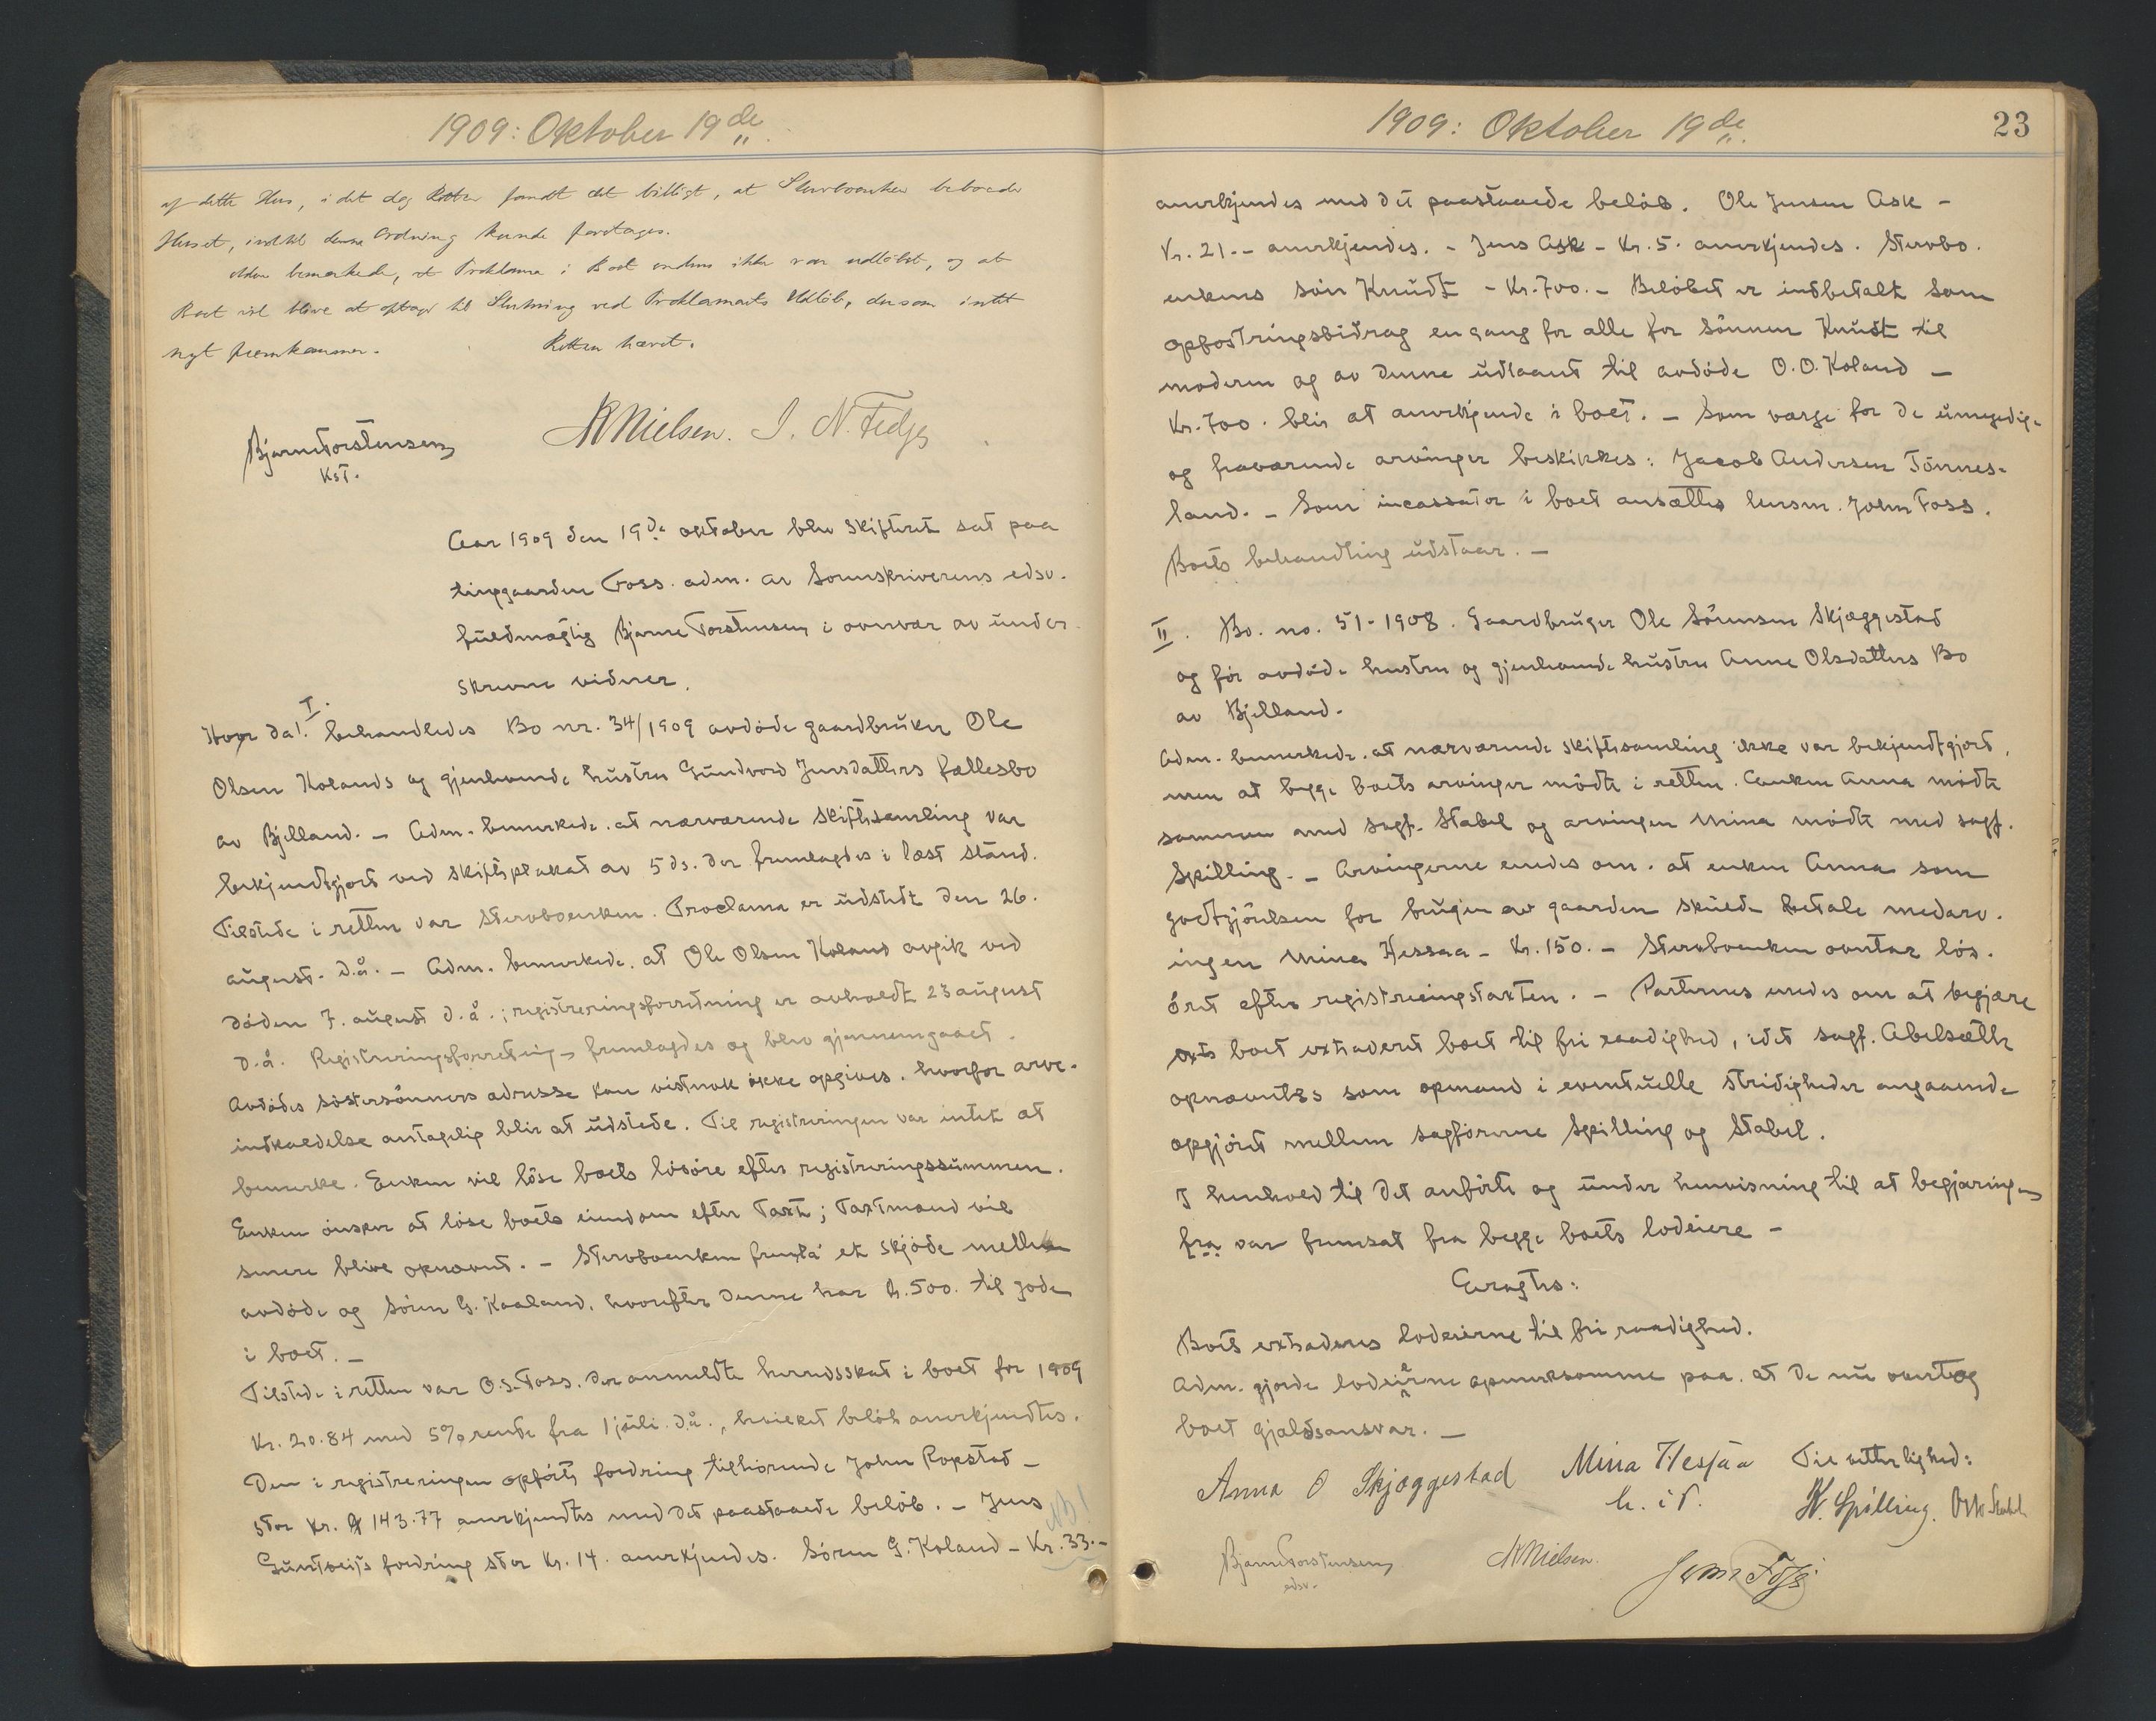 1909: Oktober 19de
af dette Hus, i det dog Retten fandt det billigt, at Stervboenken beboede
Huset, indtil denne Ordning kunde foretages.
Adm bemærkede, at Proklama i Boet endnu ikke var udløbet, og at
Boet vil blive at optage til Slutning ved Proklamaets Udløb, dersom intet
nyt fremkommer. Retten hævet.
Bjarne Torstensen
Kst.
NNielsen. J. N. Fedje
Aar 1909 den 19de oktober blev skifteret sat paa
tingaarden Foss. adm. av Sorenskriverens edsv.
fuldmægtig Bjarne Torstensen i overvær av under
skrevne vidner.
Hvor da!
I. behandledes Bo nr. 34/1909 avdøde gaardbruker Ole
Olsen Kolands og gjenlevende hustru Gundvord Jensdatters fællesbo
av Bjelland. - Adm. bemerkede. at nærværende skiftesamling var
bekjendtgjort ved skifteplakat av 5 ds. der fremlagdes i læst stand.
Tilstede i retten var stervboenken. Proclama er udstedt den 26.
august. d.å. - Adm. bemerkede. at Ole Olsen Koland avgik ved
døden 7. august d.å.; registreringsforretning er avholdt 23 august
d.å. Registreringsforretning fremlagdes og blev gjennemgaaet.
Avdødes søstersønners adresse kan vistnok ikke opgives. hvorfor arve-
indkaldelse antagelig blir at udstede. Til registreringen var intet at
bemerke. Enken vil løse boets løsøre efter registreringssummen.
Enken ønsker at løse boets eiendom efter Taxt; Taxtmænd vil
senere blive opnævnt. - Stervboenken fremla' et skjøde mellem
avdøde og Søren G. Kaaland, hvorefter denne har kr. 500. til gode
i boet. -
Tilstede i retten var O.S. Foss. der anmeldte herredsskat i boet for 1909
Kr. 20.84 med 5% rente fra 1 juli. d.å., hvilket beløb anerkjendtes.
Den i registreringen opførte fordring tilhørende John Ropstad -
stor kr. 143.77 anerkjendtes med det paastaaede beløb. - Jens
NB!
Guntveits fordring stor kr. 14. anerkjendes. Søren G. Koland - Kr. 33.-
1909: Oktober 19de
23
anerkjendes med det paastaaede beløb. Ole Jensen Ask -
Kr. 21.- anerkjendes. - Jens Ask - Kr. 5. anerkjendes. Stervbo.
enkens søn Knudt - Kr. 700. - Beløbet er indbetalt som
opfostringsbidrag en gang for alle for sønnen Knudt til
moderen og av denne udlaant til avdøde O.O. Koland -
Kr. 700. blir at anerkjende i boet. - Som værge for de umyndige
og fraværende arvinger beskikkes: Jacob Andersen Tønnes-
land. - Som incassator i boet ansættes lensm. John Foss.
Boets behandling udstaar. -
II. Bo. no. 51-1908. Gaardbruger Ole Sørensen Skjæggestad
og før avdøde hustru og gjenlevende hustru Anne Olsdatters Bo
av Bjelland.
Adm. bemerkede. at nærværende skiftesamling ikke var bekjendtgjort,
men at begge boets arvinger mødte i retten. Enken Anna mødte
sammen med sagf. Stabel og arvingen Mina mødte med sagf.
Spilling. - Arvingerne enedes om. at enken Anna som
godtgjørelsen for brugen av gaarden skulde betale medarv.
ingen Mina Hessaa - Kr. 150. - Stervboenken overtar løs.
øret efter registreringstaxten. - Parterne enedes om at begjære
boet extraderet boet til fri raadighed, idet sagf. Abelsæth
opnævntes som opmand i eventuelle stridigheder angaaende
opgjøret mellem sagførerne Spilling og Stabel.
I henhold til det anførte og under henvisning til at begjæringen
fra var fremsat fra begge boets lodeiere -
Eragtes:
Boets extraderes lodeierne til fri raadighed.
Adm. gjorde lodeierne opmerksomme paa. at de nu overtog
boet gjældsansvar. -
Anna O Skjæggestad Mina Hesjaa Til vitterlighed:
h. i P. K. Spilling. Otto Stabel
Bjarne Torstensen
edsv.
NNielsen.
Jens Foss